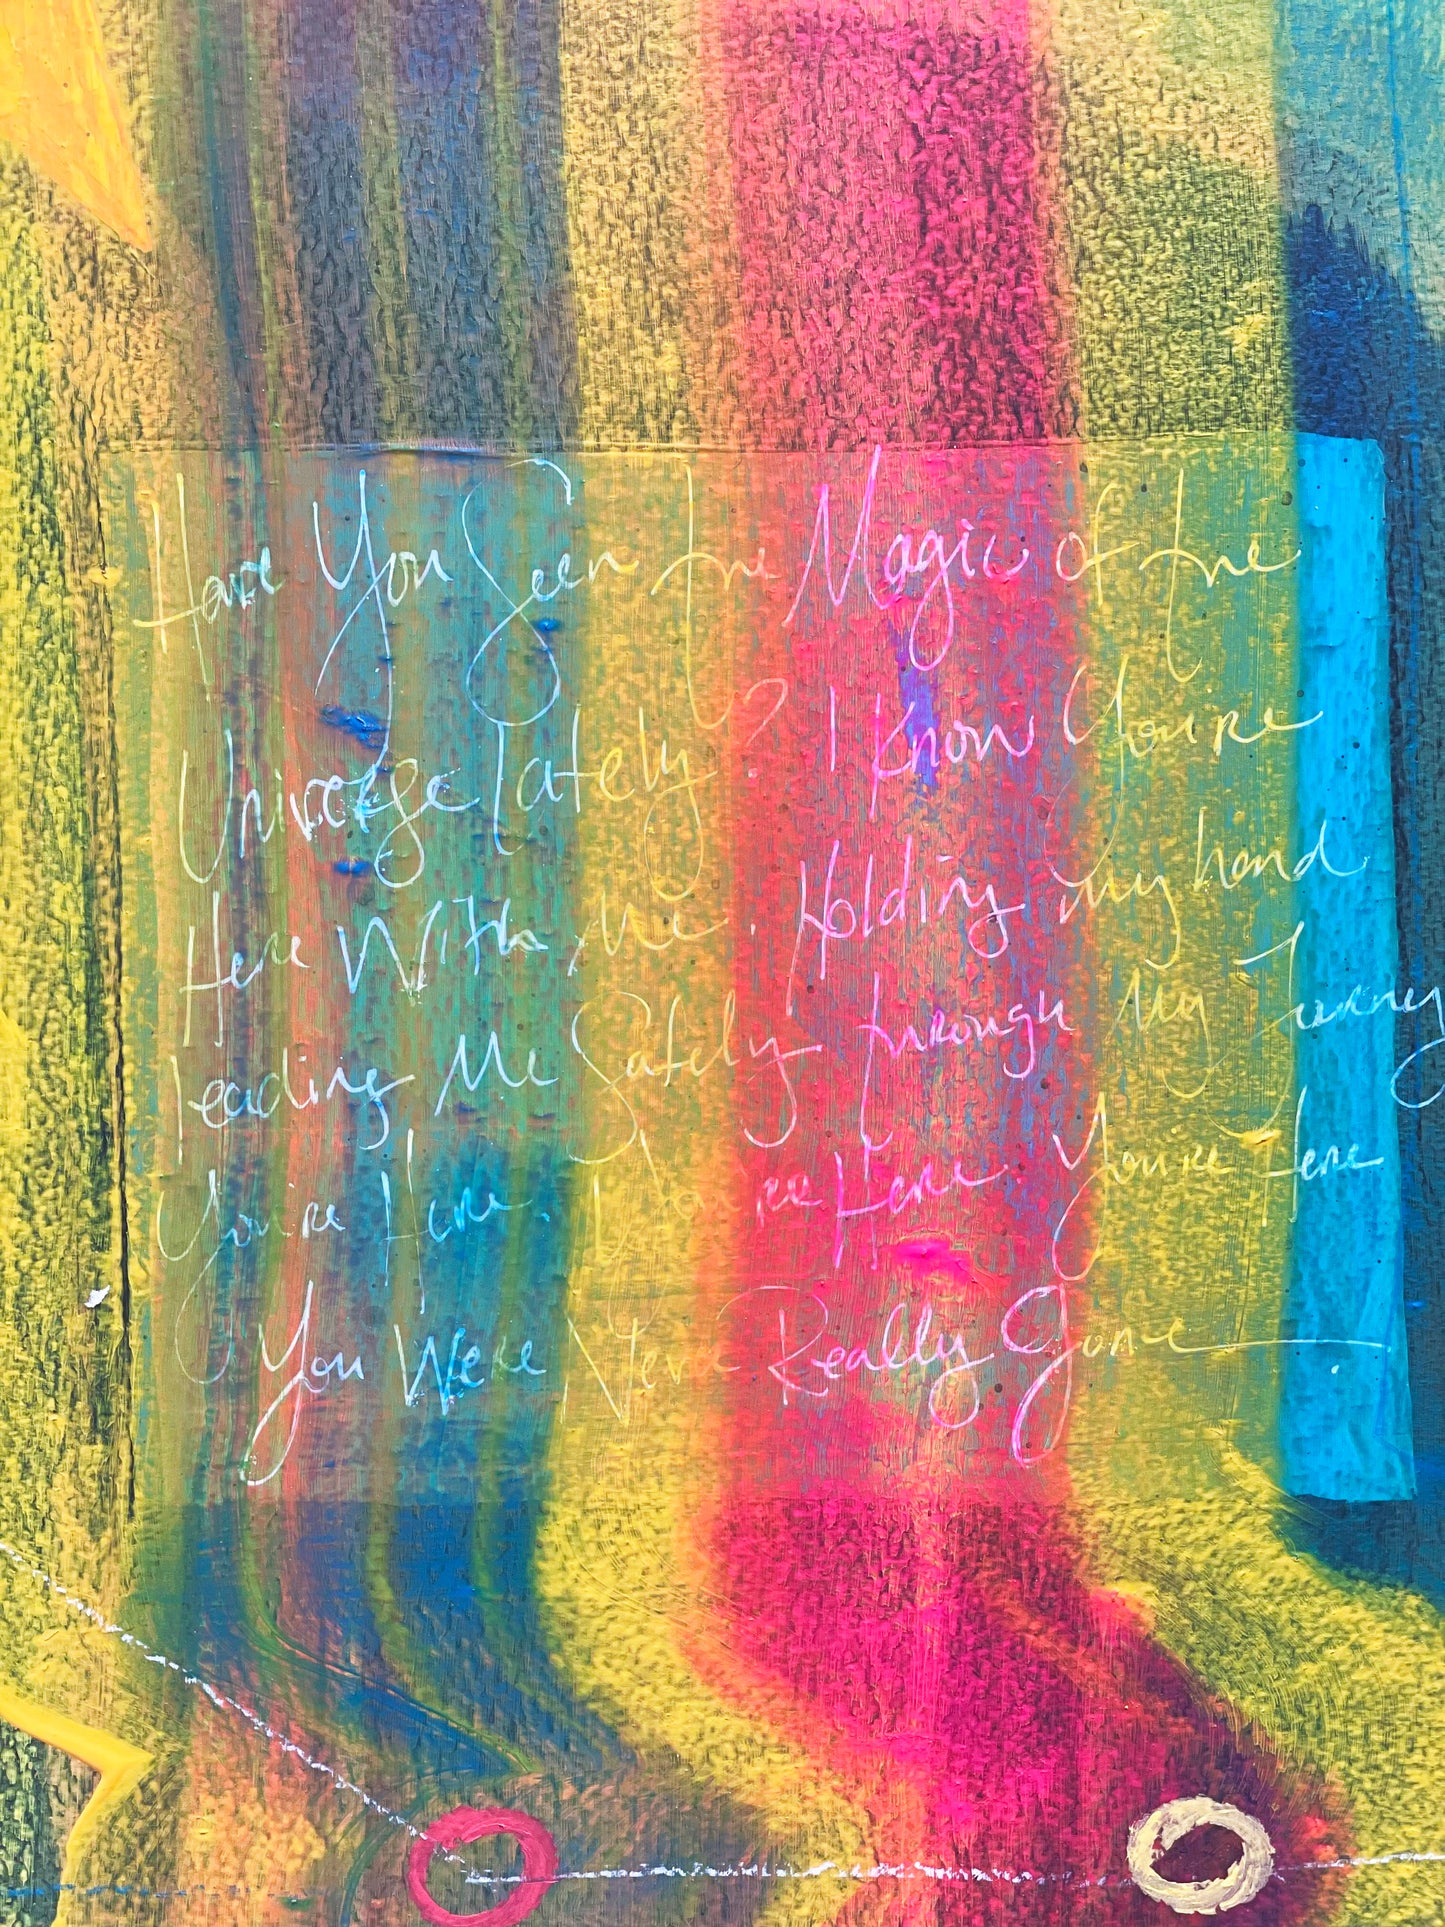 Have You Seen the Magic of the
Universe Lately? I Know You're
Here With Me. Holding my hand
Leading Me Safely through My Jurney
You're Here. You're Here. You're Here
You Were Never Really Gone.